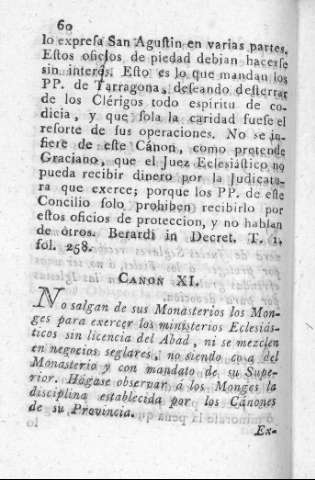 60
lo expresa San Agustin en varias partes.
Estos oficios de piedad debian hacerse
sin interés. Esto es lo que mandan los
PP. de Tarragona, deseando desterrar
de los Clérigos todo espíritu de co-
dicia, y que sola la caridad fuese el
resorte de sus operaciones. No se in-
fiere de este Cánon, como pretende
Graciano, que el Juez Eclesiástico no
pueda recibir dinero por la Judicatu-
ra que exerce; porque los PP. de este
Concilio solo prohiben recibirlo por
estos oficios de proteccion, y no hablan
de otros. Berardi in Decret. T. 1,
fol. 258.
CANON XI.
No salgan de sus Monasterios los Mon-
ges para exercer los ministerios Eclesiás-
ticos sin licencia del Abad, ni se mezclen
en negocios seglares, no siendo cosa del
Monasterio y con mandato de su Supe-
rior. Hágase observar á los Monges la
disciplina establecida por los Cánones
de su Provincia.
Ex-